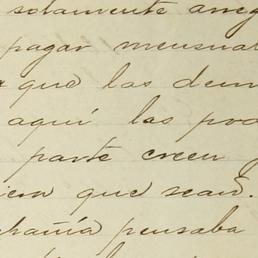 solamente
pagar mensual
que las dem
aquí las pod
parte creen
que sean.
pensaba